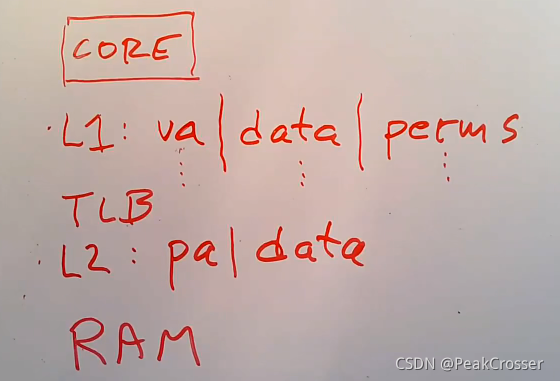 CORE
L1: va | data | perms
TLB
L2: pa | data
RAM
CSDN @PeakCrosser